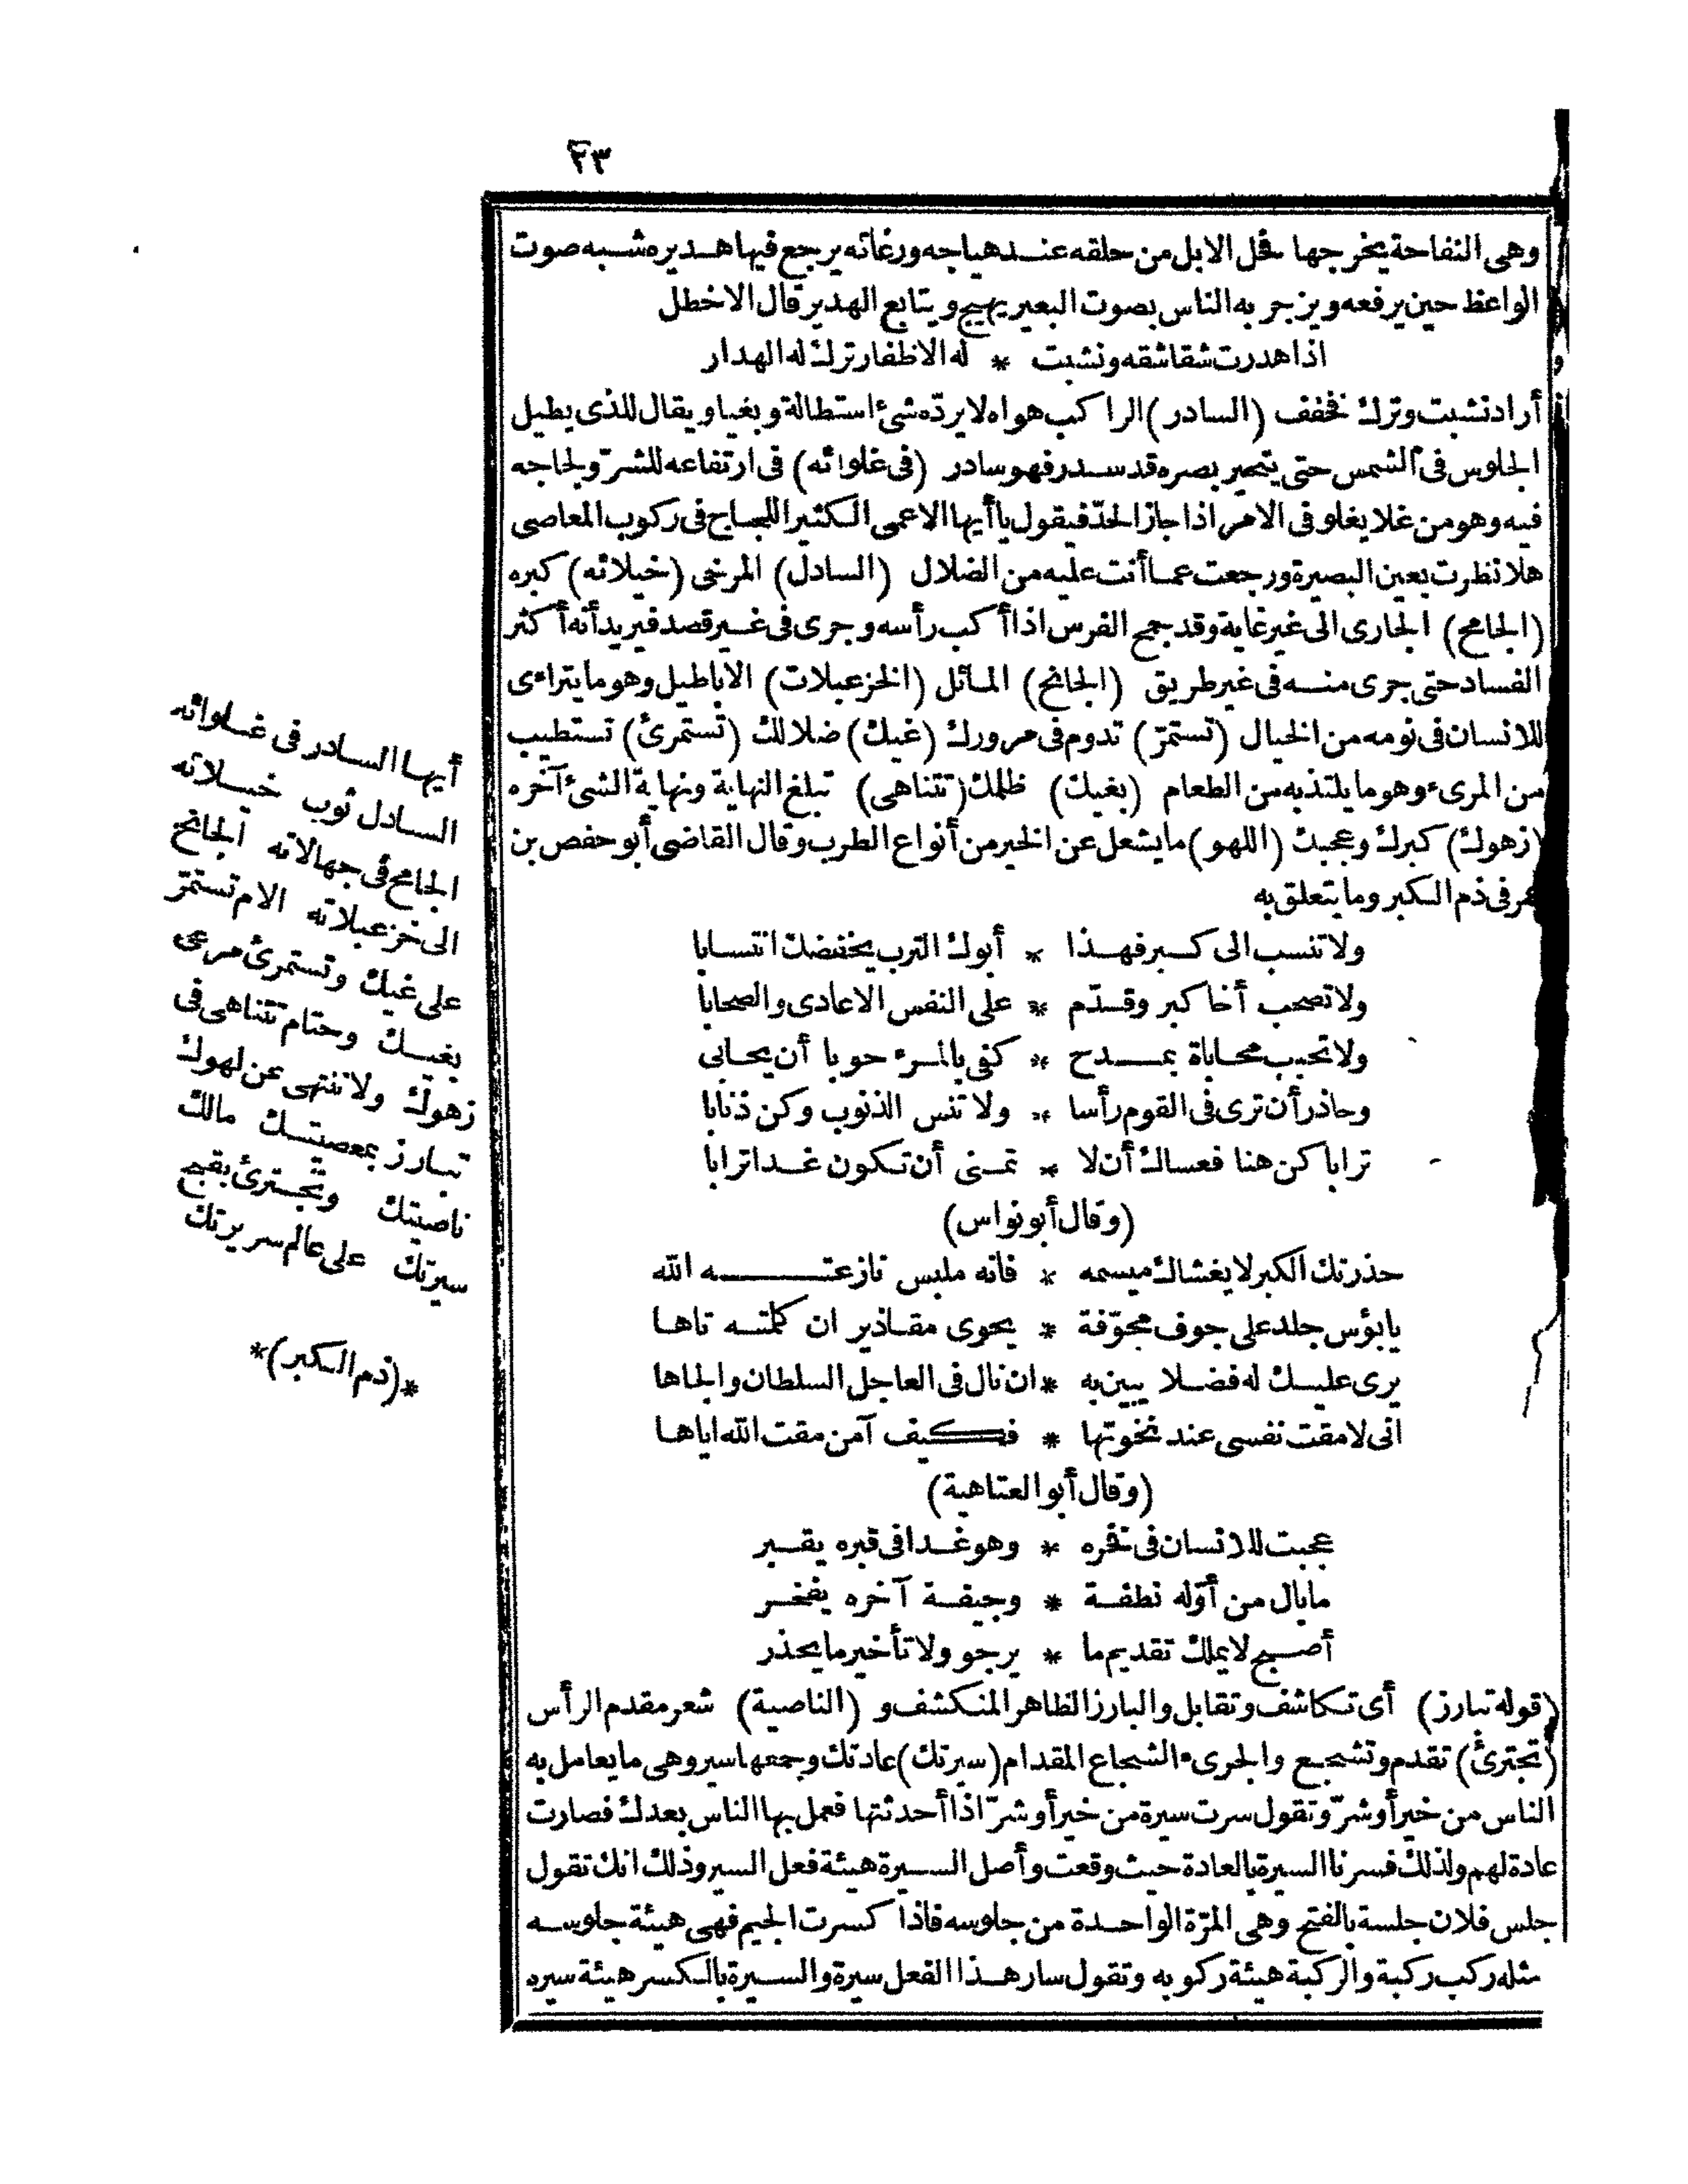 ٢٣
وهى النفاحة يخرجها فحل الابل من حلقه عند هياجه ورغائه يرجع فيها هديره شبه صوت
الواعظ حين يرفعه ويزجر به الناس بصوت البعير يهيج ويتابع الهدير قال الاخطل
اذا هدرت شقاشقه ونشبت * له الاظفار ترك له الهدار
أراد نشبت وترك فخفف (السادر) الراكب هواه لا يردّه شئ استطالة وبغيا ويقال للذى يطيل
الجلوس فى الشمس حتى يتحير بصره قد سدر فهو سادر (فى غلوائه) فى ارتفاعه للشرّ ولجاجه
فيه وهو من غلا يغلو فى الامر اذا جاز الحدّ فيقول يا أيها الاعمى الكثير اللجاج فى ركوب المعاصى
هلا نظرت بعين البصيرة ورجعت عما أنت عليه من الضلال (السادل) المرخى (خيلائه) كبره
(الجامح) الجارى الى غير غاية وقد جمح الفرس اذا أكب رأسه وجرى فى غير قصد فيريد أنه أكثر
الفساد حتى جرى منه فى غير طريق (الجانح) المائل (الخزعبلات) الاباطيل وهو ما يتراءى
للانسان فى نومه من الخيال (تستمرّ) تدوم فى مرورك (غيك) ضلالك (تستمرئ) تستطيب
من المرىء وهو ما يلتذبه من الطعام (بغيك) ظلمك (تتناهى) تبلغ النهاية ونهاية الشئ آخره
(زهوك) كبرك وعجبك (اللهو) ما يشعل عن الخير من أنواع الطرب وقال القاضى أبو حفص بن
عمر فى ذم الكبر وما يتعلق به
ولا تنسب الى كبر فهذا * أبوك الترب يخفضك انتسابا
ولا تصحب أخا كبر وقدّم * على النفس الاعادى والصحابا
ولا تحبب محاباة بمدح * كفى بالمرء حوبا أن يحابى
وحاذر أن ترى فى القوم رأسا * ولا تنس الذنوب وكن ذنابا
ترابا كن هنا فعساك أن لا * تمنى أن تكون غدا ترابا
(وقال أبو نواس)
حذرتك الكبر لا يغشاك ميسمه * فانه ملبس نازعته الله
يا بؤس جلد على جوف مجوّفة * يحوى مقاذير ان كلمته تاها
يرى عليك له فضلا يبين به * ان نال فى العاجل السلطان والجاها
انى لامقت نفسى عند نخوتها * فكيف آمن مقت الله اياها
(وقال أبو العتاهية)
عجبت للانسان فى فخره * وهو غدا فى قبره يقبر
ما بال من أوّله نطفة * وجيفة آخره يفخر
أصبح لا يملك تقديم ما * يرجو ولا تأخير ما يحذر
(قوله تبارز) أى تكاشف وتقابل والبارز الظاهر المنكشف و (الناصية) شعر مقدم الرأس
(تجترئ) تقدم وتشجع والجرىء الشجاع المقدام (سيرتك) عادتك وجمعها سير وهى ما يعامل به
الناس من خير أو شرّ وتقول سرت سيرة من خير أو شرّ اذا أحدثتها فعمل بها الناس بعدك فصارت
عادة لهم ولذلك فسرنا السيرة بالعادة حيث وقعت وأصل السيرة هيئة فعل السير وذلك انك تقول
جلس فلان جلسة بالفتح وهى المرّة الواحدة من جلوسه فاذا كسرت الجيم فهى هيئة جلوسه
مثله ركب ركبة والركبة هيئة ركوبه وتقول سار هذا الفعل سيرة والسيرة بالكسر هيئة سيره
أيها السادر فى غلوائه
السادل ثوب خيلائه
الجامح فى جهالاته الجانح
الى خزعبلاته الام تستمرّ
على غيك وتستمرئ مرعى
بغيك وحتام تتناهى فى
زهوك ولا تنتهى عن لهوك
تبارز بمعصيتك مالك
ناصيتك وتجترئ بقبح
سيرتك على عالم سريرتك
*(ذم الكبر)*